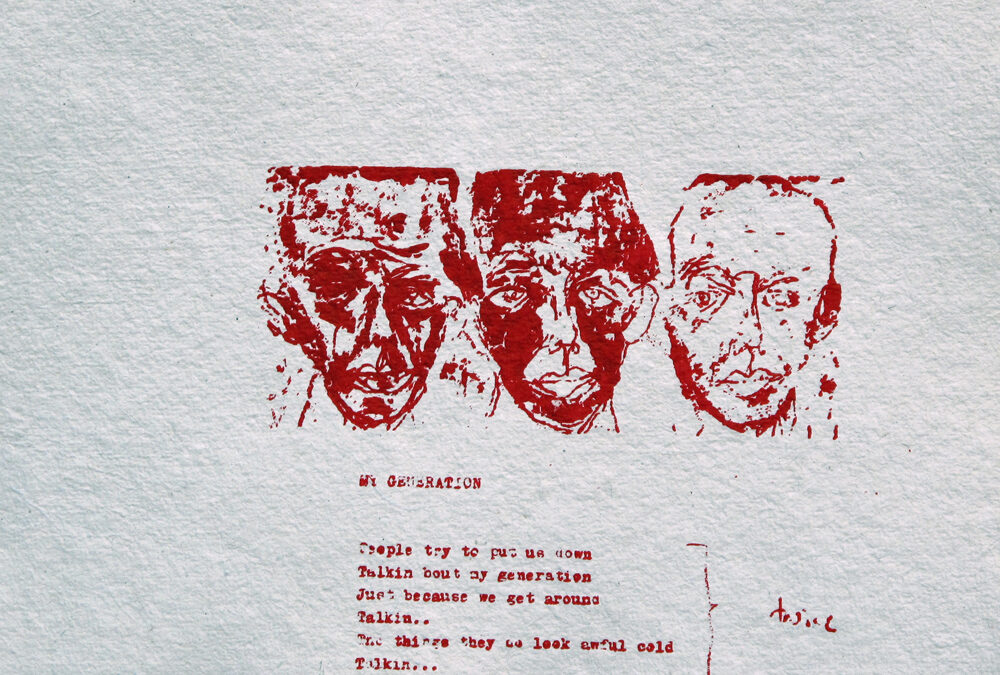 MY GENERATION
People try to put us down
Talkin bout my generation
Just because we get around
Talkin..
The things they do look awful cold
Talkin...